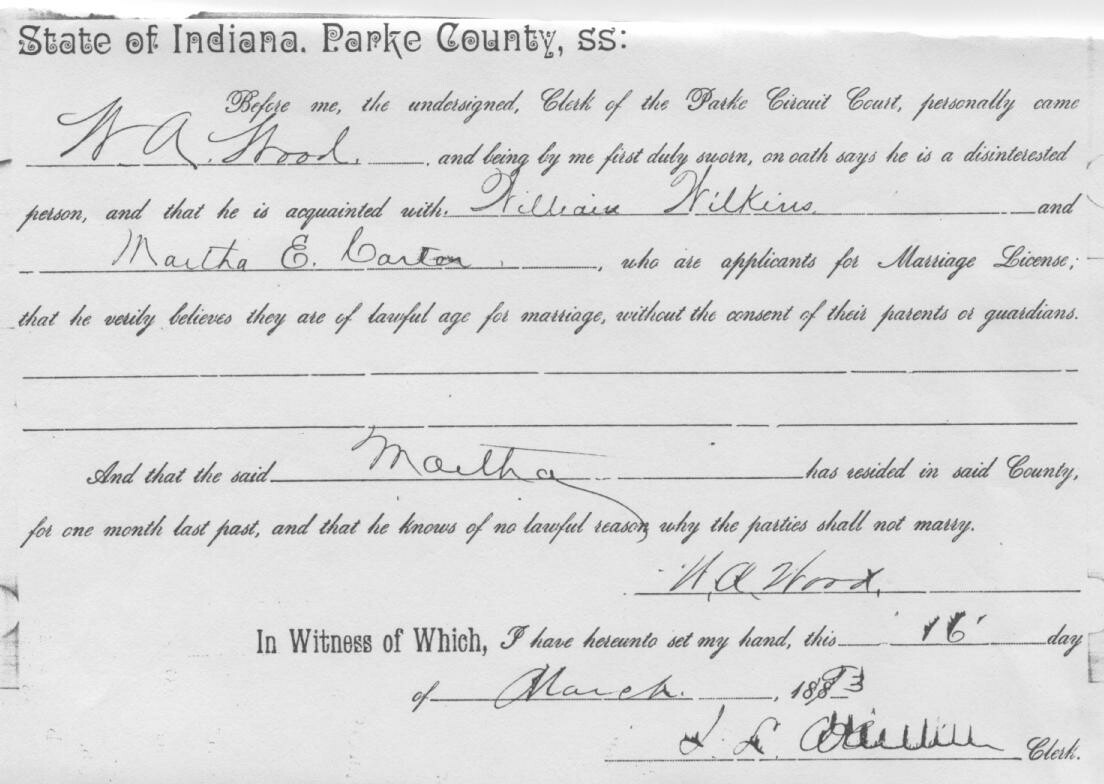 State of Indiana. Parke County, ss:
Before me, the undersigned, Clerk of the Parke Circuit Court, personally came
W. A. Wood. and being by me first duly sworn, on oath says he is a disinterested
person, and that he is acquainted with William Wilkins. and
Martha E. Carton, who are applicants for Marriage License;
that he verily believes they are of lawful age for marriage, without the consent of their parents or guardians.
And that the said Martha has resided in said County,
for one month last past, and that he knows of no lawful reason why the parties shall not marry.
W. A. Wood.
In Witness of Which, I have hereunto set my hand, this 16 day
of March. , 18
Clerk.